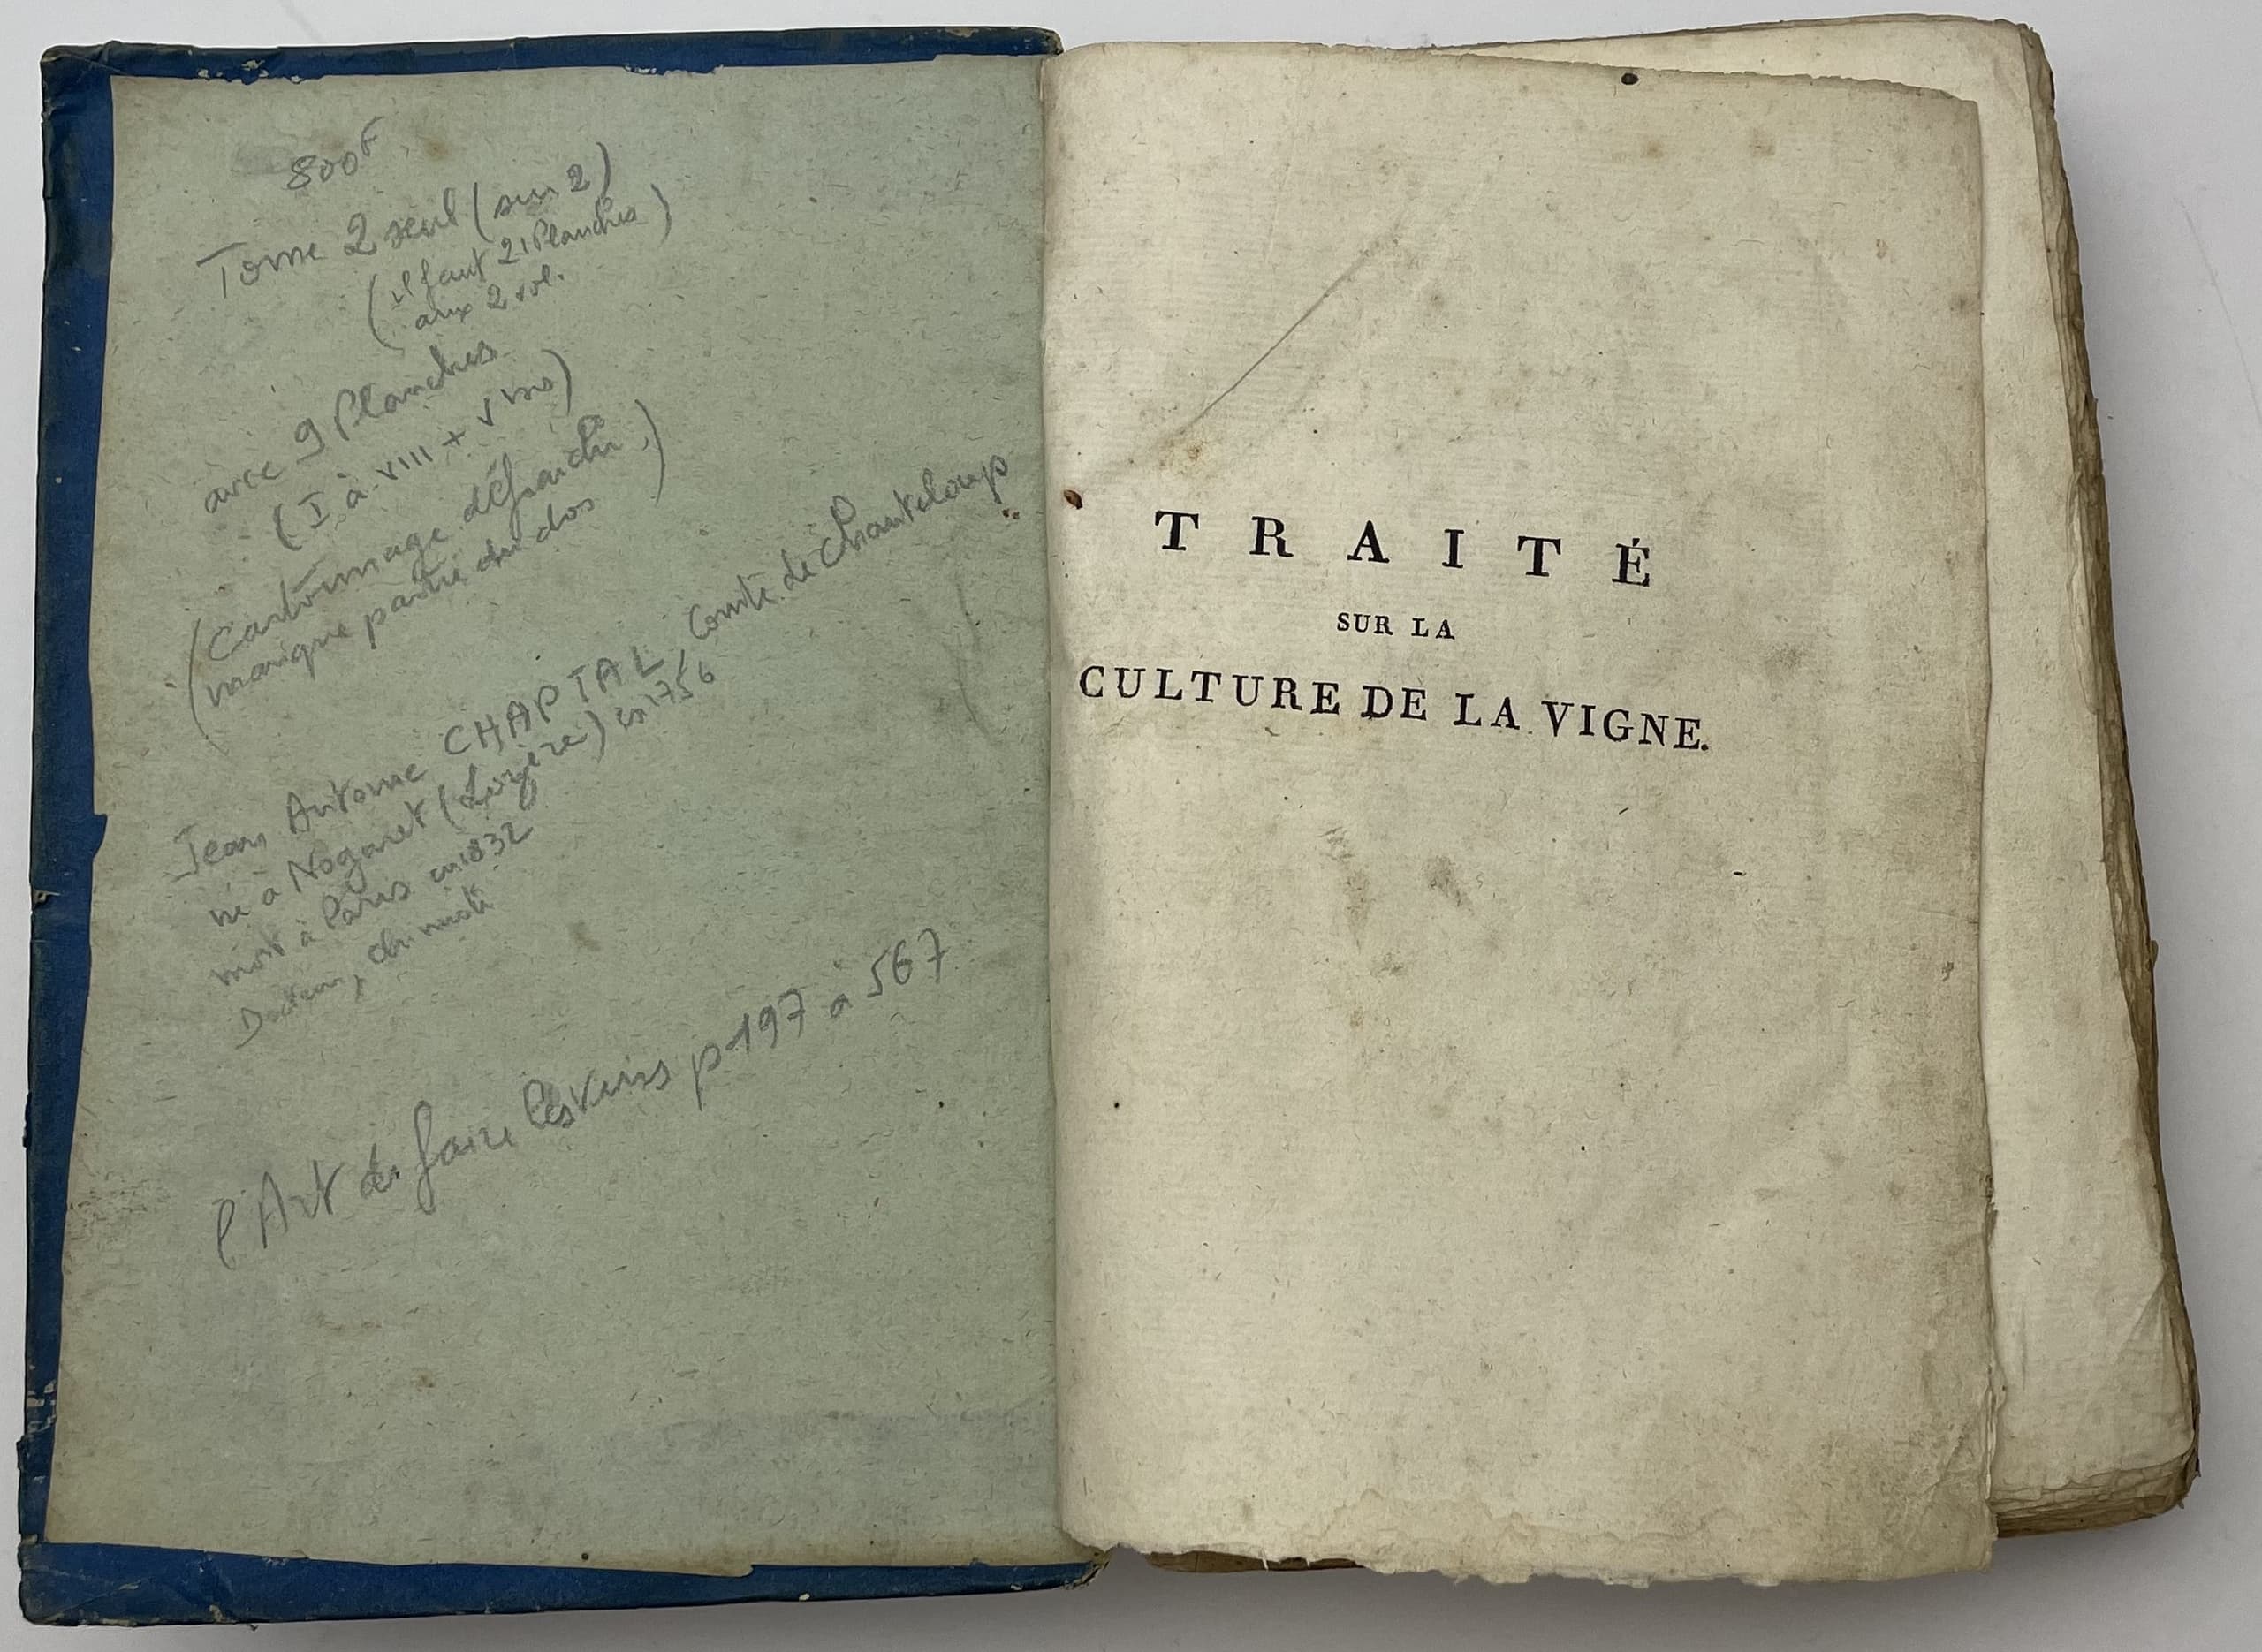 800F
Tome 2 seul (sur 2)
(il faut 21 Planches)
aux 2 vol.
avec 9 Planches
(I à VIII + V bis)
(Cartonnage défraichi)
manque partie du dos
Jean Antoine CHAPTAL, Comte de Chanteloup
né à Nogaret (Lozère) en 1756
mort à Paris en 1832
Docteur, chimiste
l'Art de faire les vins p 197 à 567
TRAITÉ
SUR LA
CULTURE DE LA VIGNE.